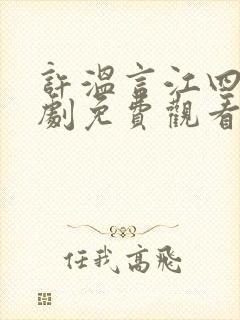 許溫言江四
劇免費觀看
任我高飛